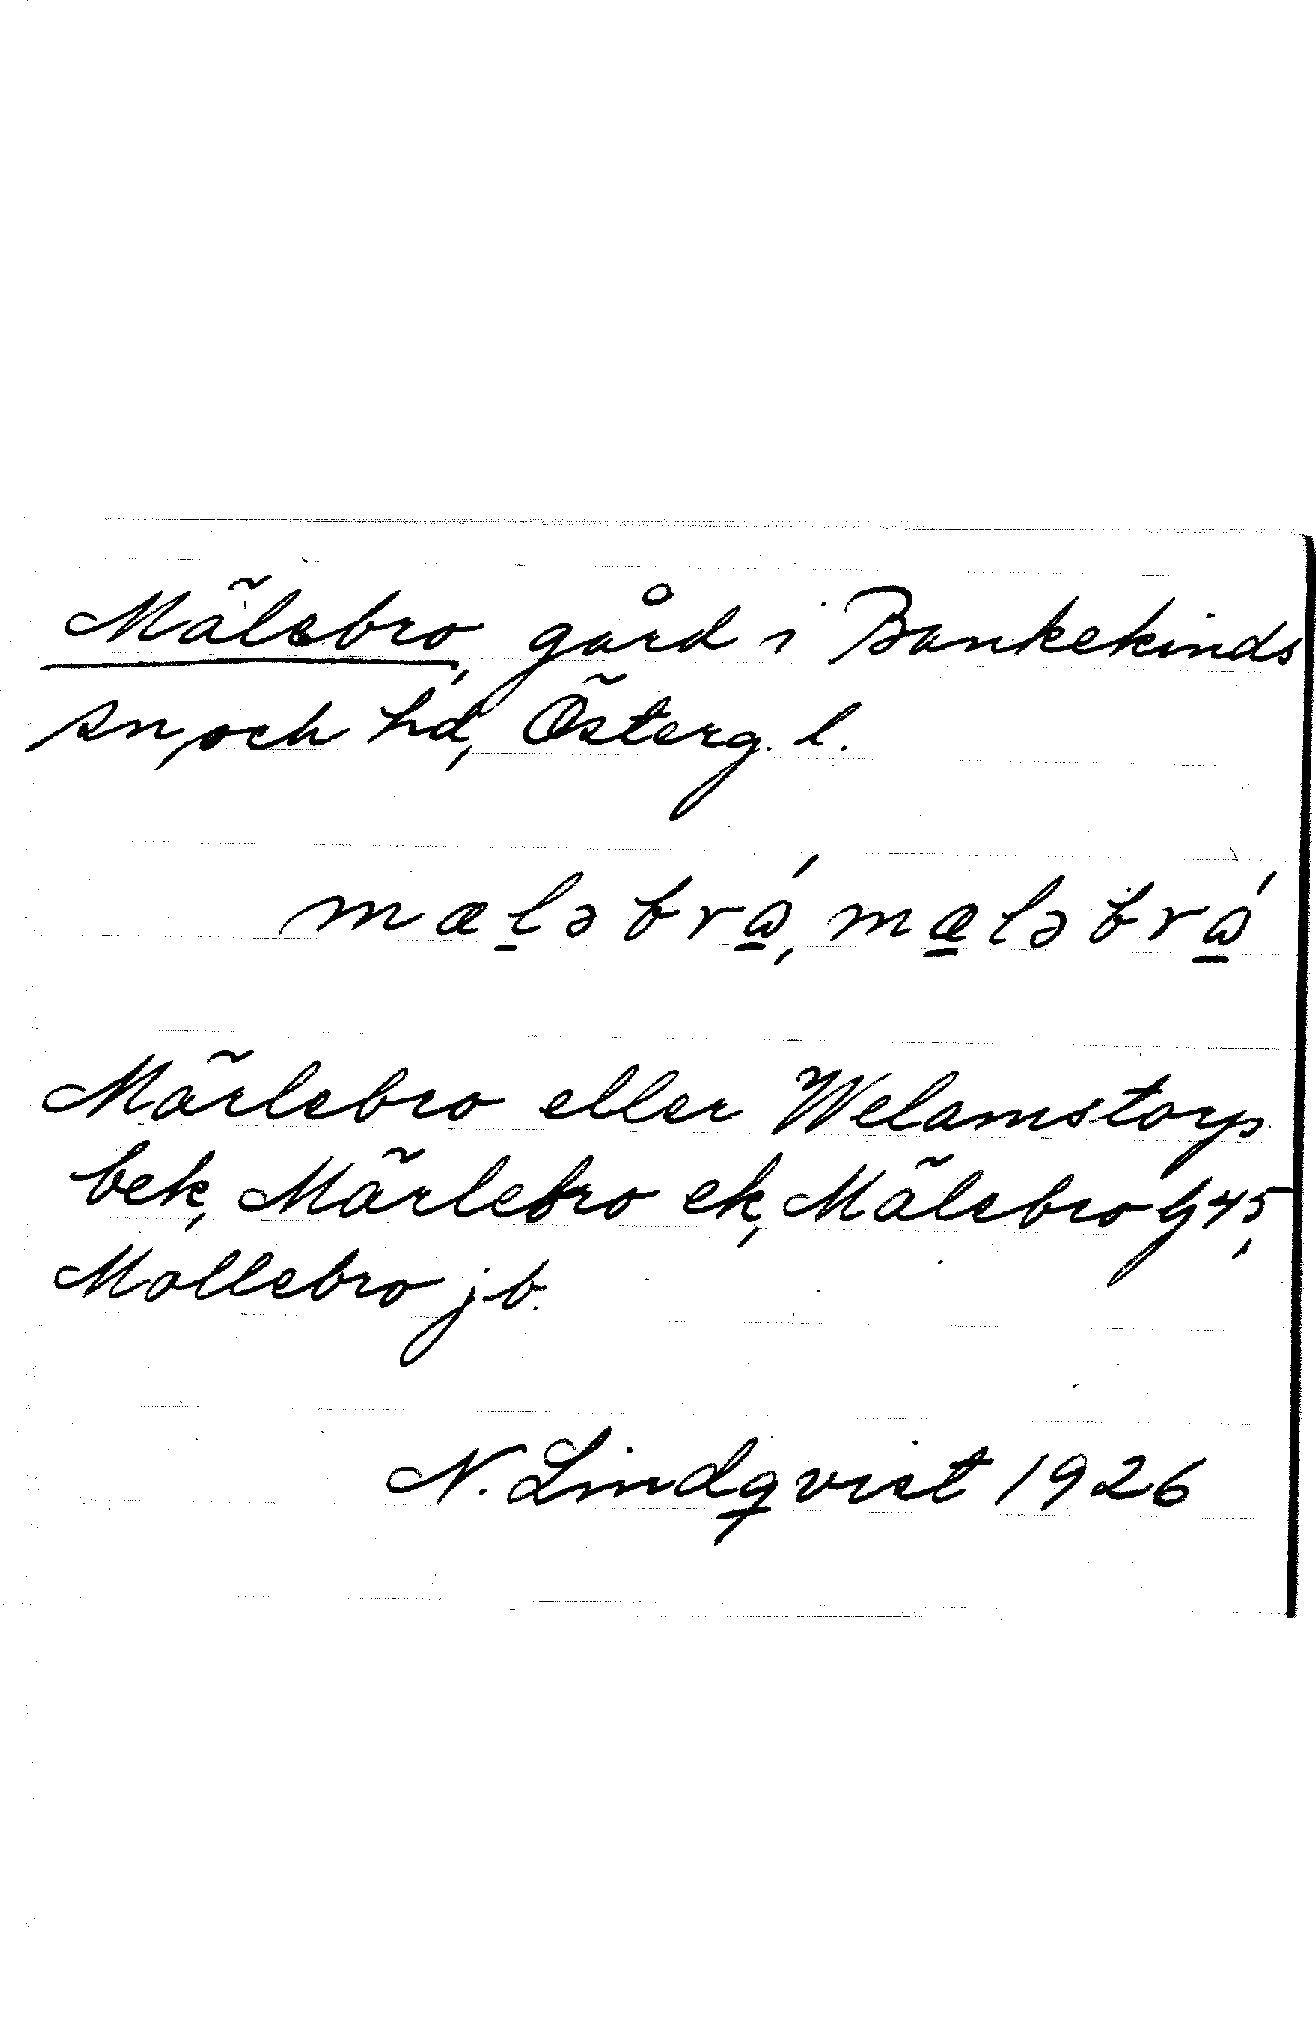 Mälebro, gård i Bankekinds
sn, och hd, Österg. l.
mæl̲əbrώ̲, mæ̲ləbrώ̲
Märlebro eller Welamstorp
bek, Märlebro ek, Mälebro G45,
Mollebro jb.
N. Lindqvist 1926